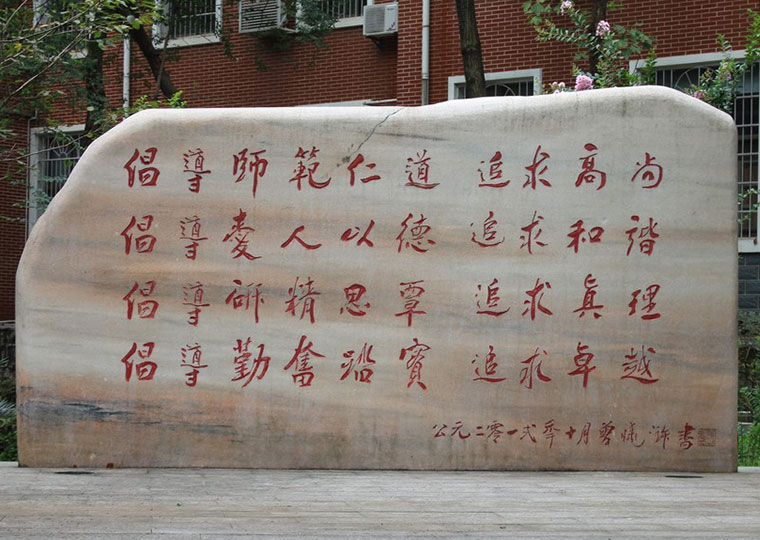 倡導師範仁道 追求高尚
倡導愛人以德 追求和諧
倡導研精思覃 追求眞理
倡導勤奮踏實 追求卓越
公元二零一弍年十月曾曉滸書